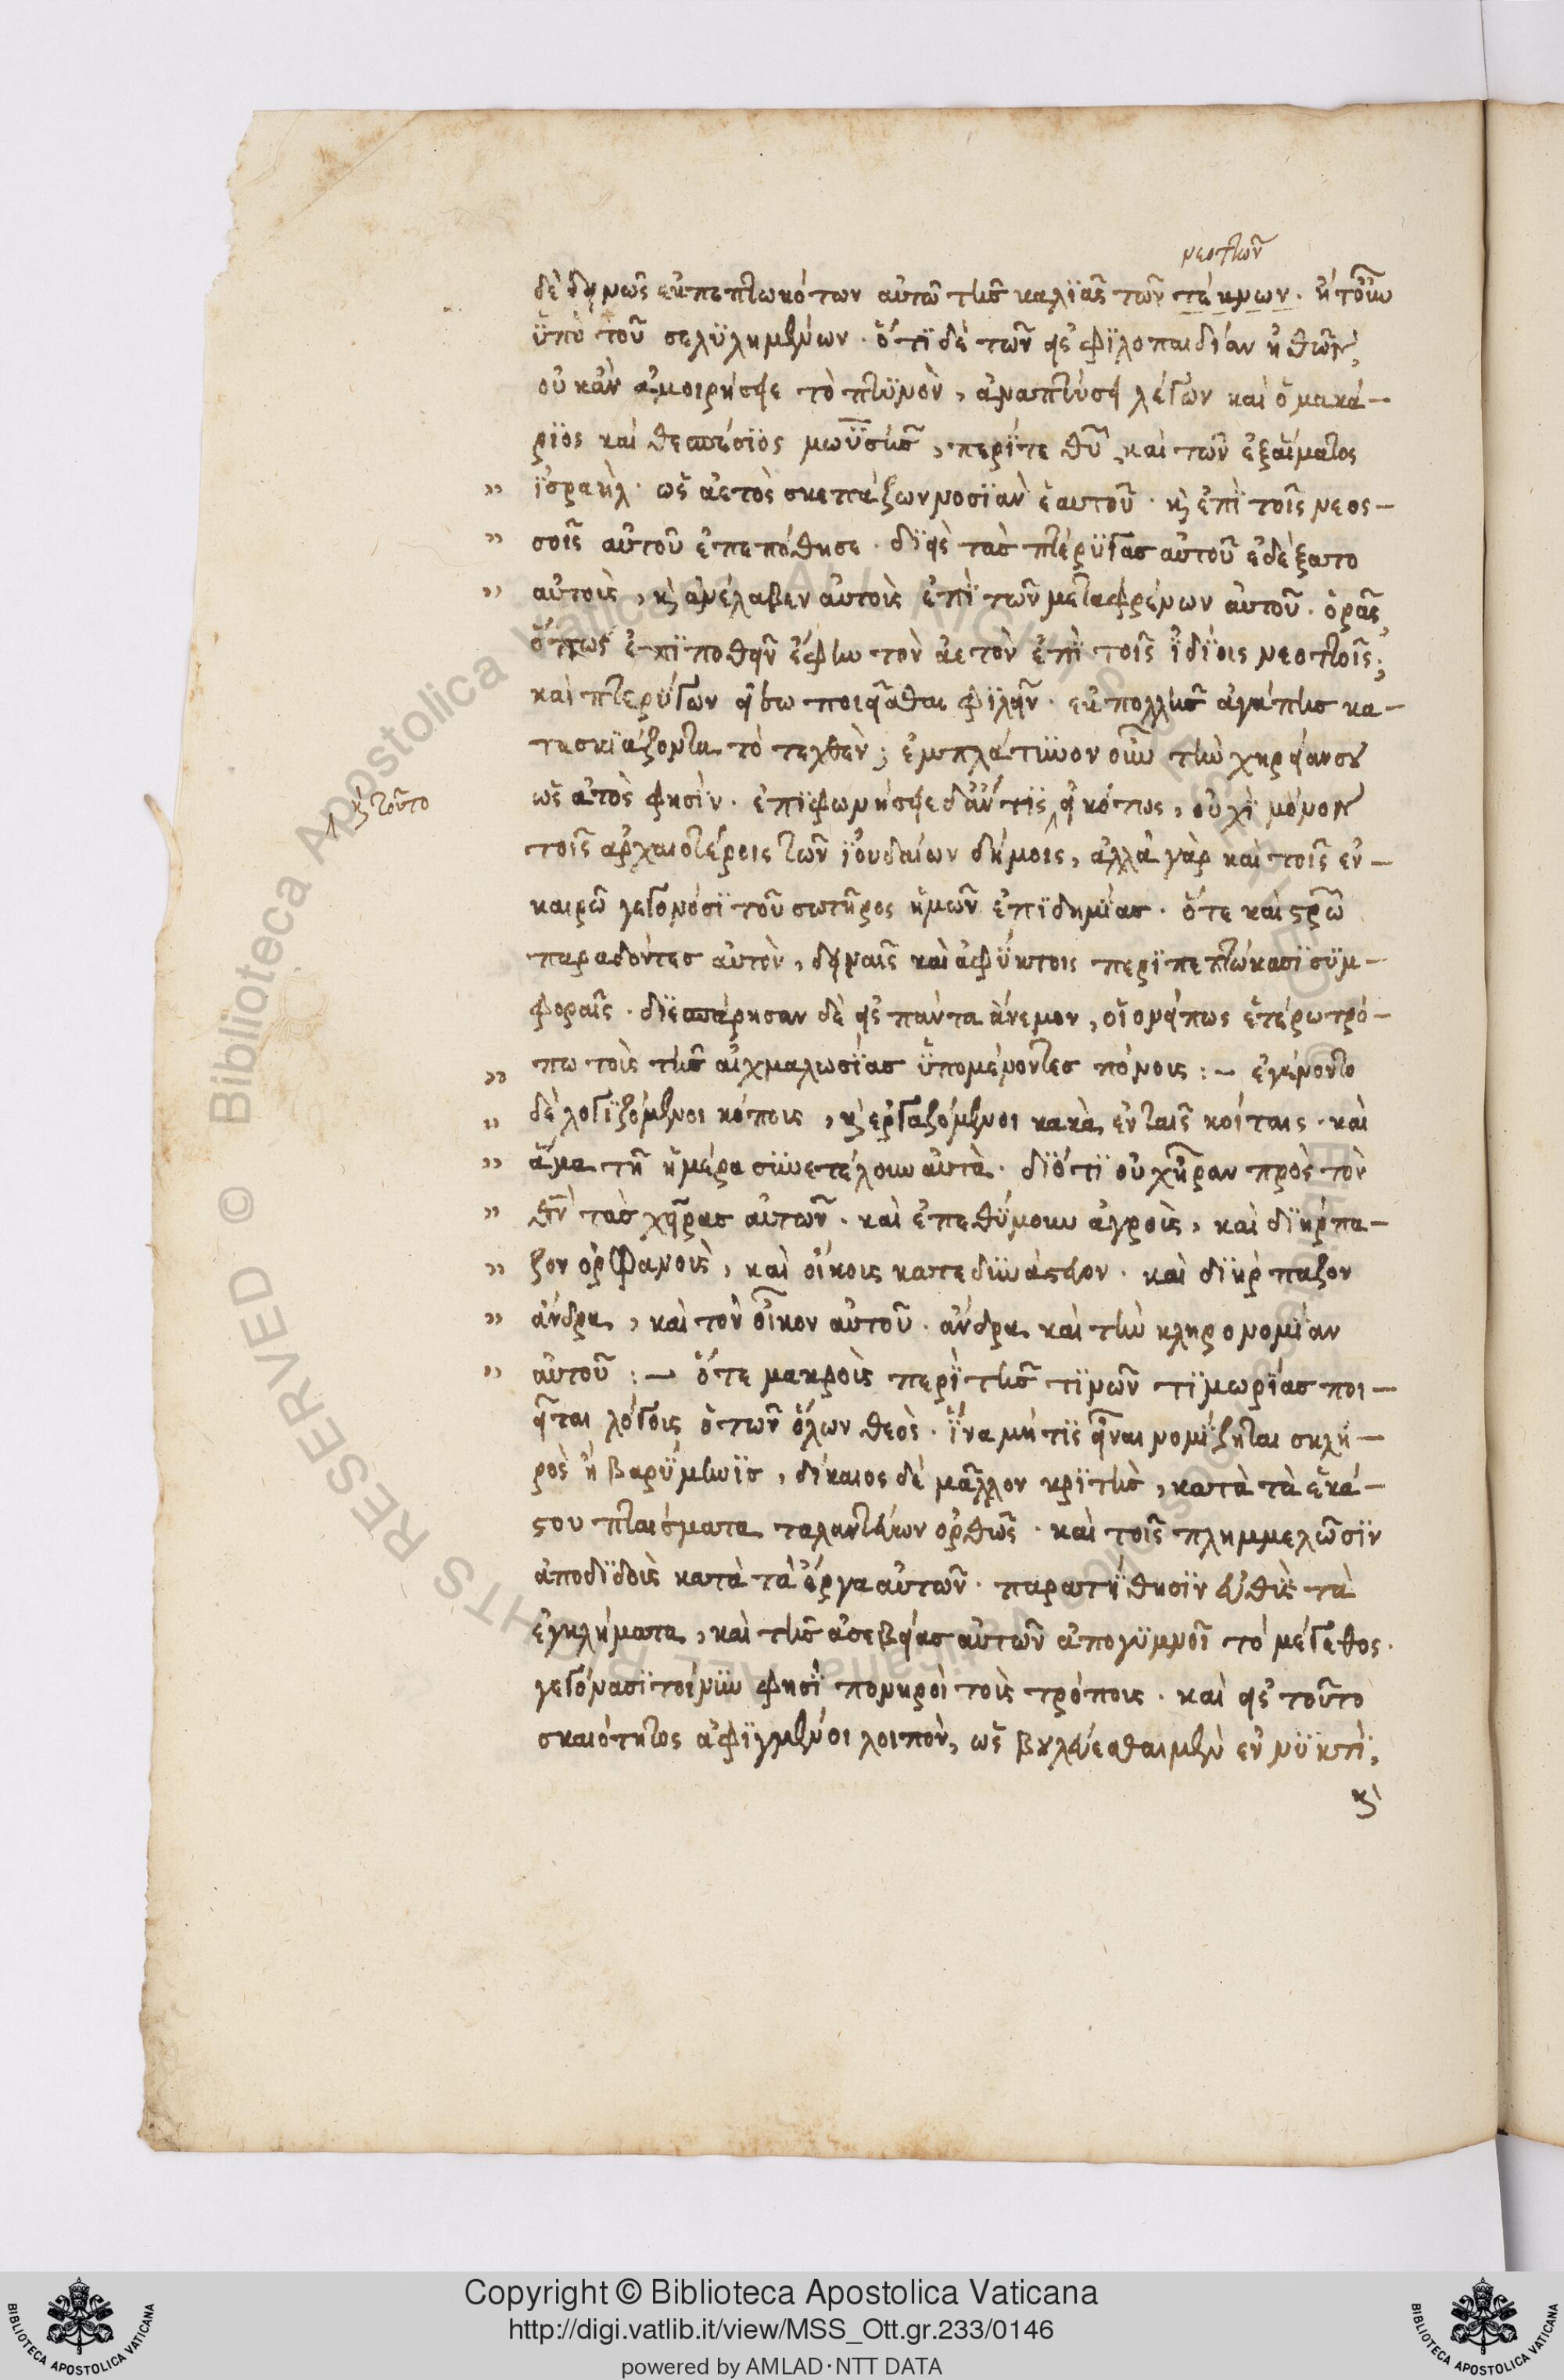 νεοττῶν
δὲ δεινῶς ἐκπεπτωκότων αὐτῶ τῆς καλϊᾶς τῶν τέκνων. ἤτουν
ὑπό του σεσυλημένων. ὅτι δὲ τῶν εἰς φιλοπαιδίαν ἠθῶν,
οὐκ ἂν ἀμοιρήσειε τὸ πτυνὸν, ἀναπτύσει λέγων καὶ ὁ μακά-
ριος καὶ θεσπέσιος μωϋσῆς, περί τε θῦ, καὶ τῶν ἐξ αἵματος
" ἰσραήλ. ὡς ἀετὸς σκεπάζων νοσϊὰν ἑαυτοῦ. κỳ ἐπὶ τοῖς νεοσ-
" σοῖς αὐτοῦ ἐπεπόθησε. διεὶς τὰς πτέρυγας αὐτοῦ ἐδέξατο
" αὐτοὺς, κỳ ἀνέλαβεν αὐτοὺς ἐπὶ τῶν μεταφρένων αὐτοῦ. ὁρᾶς
ὅπως ἐπιποθεῖν ἔφη τὸν ἀετὸν ἐπὶ τοῖς ἰδίοις νεοττοῖς;
καὶ πτερύγων εἴσω ποιεῖσθαι φιλεῖν. ἐκ πολλῆς ἀγάπης κα-
τασκιάζοντα τὸ τεχθὲν; ἐμπλάτυνον οὖν τὴν χηρείαν σου
ὡς ἀετὸς φησὶν. ἐπιφωνήσειε δ' ἄν τις εἰκότως, οὐχὶ μόνον
κỳ τοῦτο
τοῖς ἀρχαιοτέροις τῶν ἰουδαίων δήμοις, ἀλλὰ γὰρ καὶ τοῖς ἐν-
καιρῶ γεγονόσι τοῦ σωτῆρος ἡμῶν ἐπιδημίας. ὅτε καὶ ςρῶ
παραδόντες αὐτὸν, δειναῖς καὶ ἀφύκτοις περιπεπτώκασι συμ-
φοραῖς. διεσπάρησαν δὲ εἰς πάντα ἄνεμον, οἱονείπως ἑτέρω τρό-
" πω τοὺς τῆς αἰχμαλωσίας ὑπομένοντες πόνους :- ἐγένοντο
" δὲ λογιζόμενοι κόπους, κỳ ἐργαζόμενοι κακὰ ἐν ταῖς κοίταις. καὶ
" ἅμα τῆ ἡμέρα συνετέλουν αὐτὰ. διότι οὐχ ἦραν πρὸς τὸν
" θν̄ τὰς χεῖρας αὐτῶν. καὶ ἐπεθύμουν ἀγροὺς, καὶ διήρπα-
" ζον ὀρφανοὺς, καὶ οἴκους κατεδυνάστευον. καὶ διήρπαζον
" ἄνδρα, καὶ τὸν οἶκον αὐτοῦ. ἄνδρα καὶ τὴν κληρονομίαν
" αὐτοῦ :- ὅτε μακροὺς περὶ τῆς τινῶν τιμωρίας ποι-
εῖται λόγους ὁ τῶν ὅλων θεὸς. ἵνα μή τις εἶναι νομίζηται σκλη-
ρὸς ἢ βαρύμηνις, δίκαιος δὲ μᾶλλον κριτὴς, κατὰ τὰ ἑκά-
στου πταίσματα ταλαντεύων ὀρθῶς. καὶ τοῖς πλημμελῶσιν
ἀποδιδοὺς κατὰ τὰ ἔργα αὐτῶν. παρατίθησιν εὐθὺς τὰ
ἐγκλήματα, καὶ τῆς ἀσεβείας αὐτῶν ἀπογυμνοῖ τὸ μέγεθος.
γεγόνασι τοίνυν φησὶ πονηροὶ τοὺς τρόπους. καὶ εἰς τοῦτο
σκαιότητος ἀφιγμένοι λοιπὸν, ὡς βουλεύεσθαι μὲν ἐν νυκτὶ,
κỳ
Copyright © Biblioteca Apostolica Vaticana
http://digi.vatlib.it/view/MSS_Ott.gr.233/0146
powered by AMLAD·NTT DATA
BIBLIOTECA APOSTOLICA VATICANA
BIBLIOTECA APOSTOLICA VATICANA